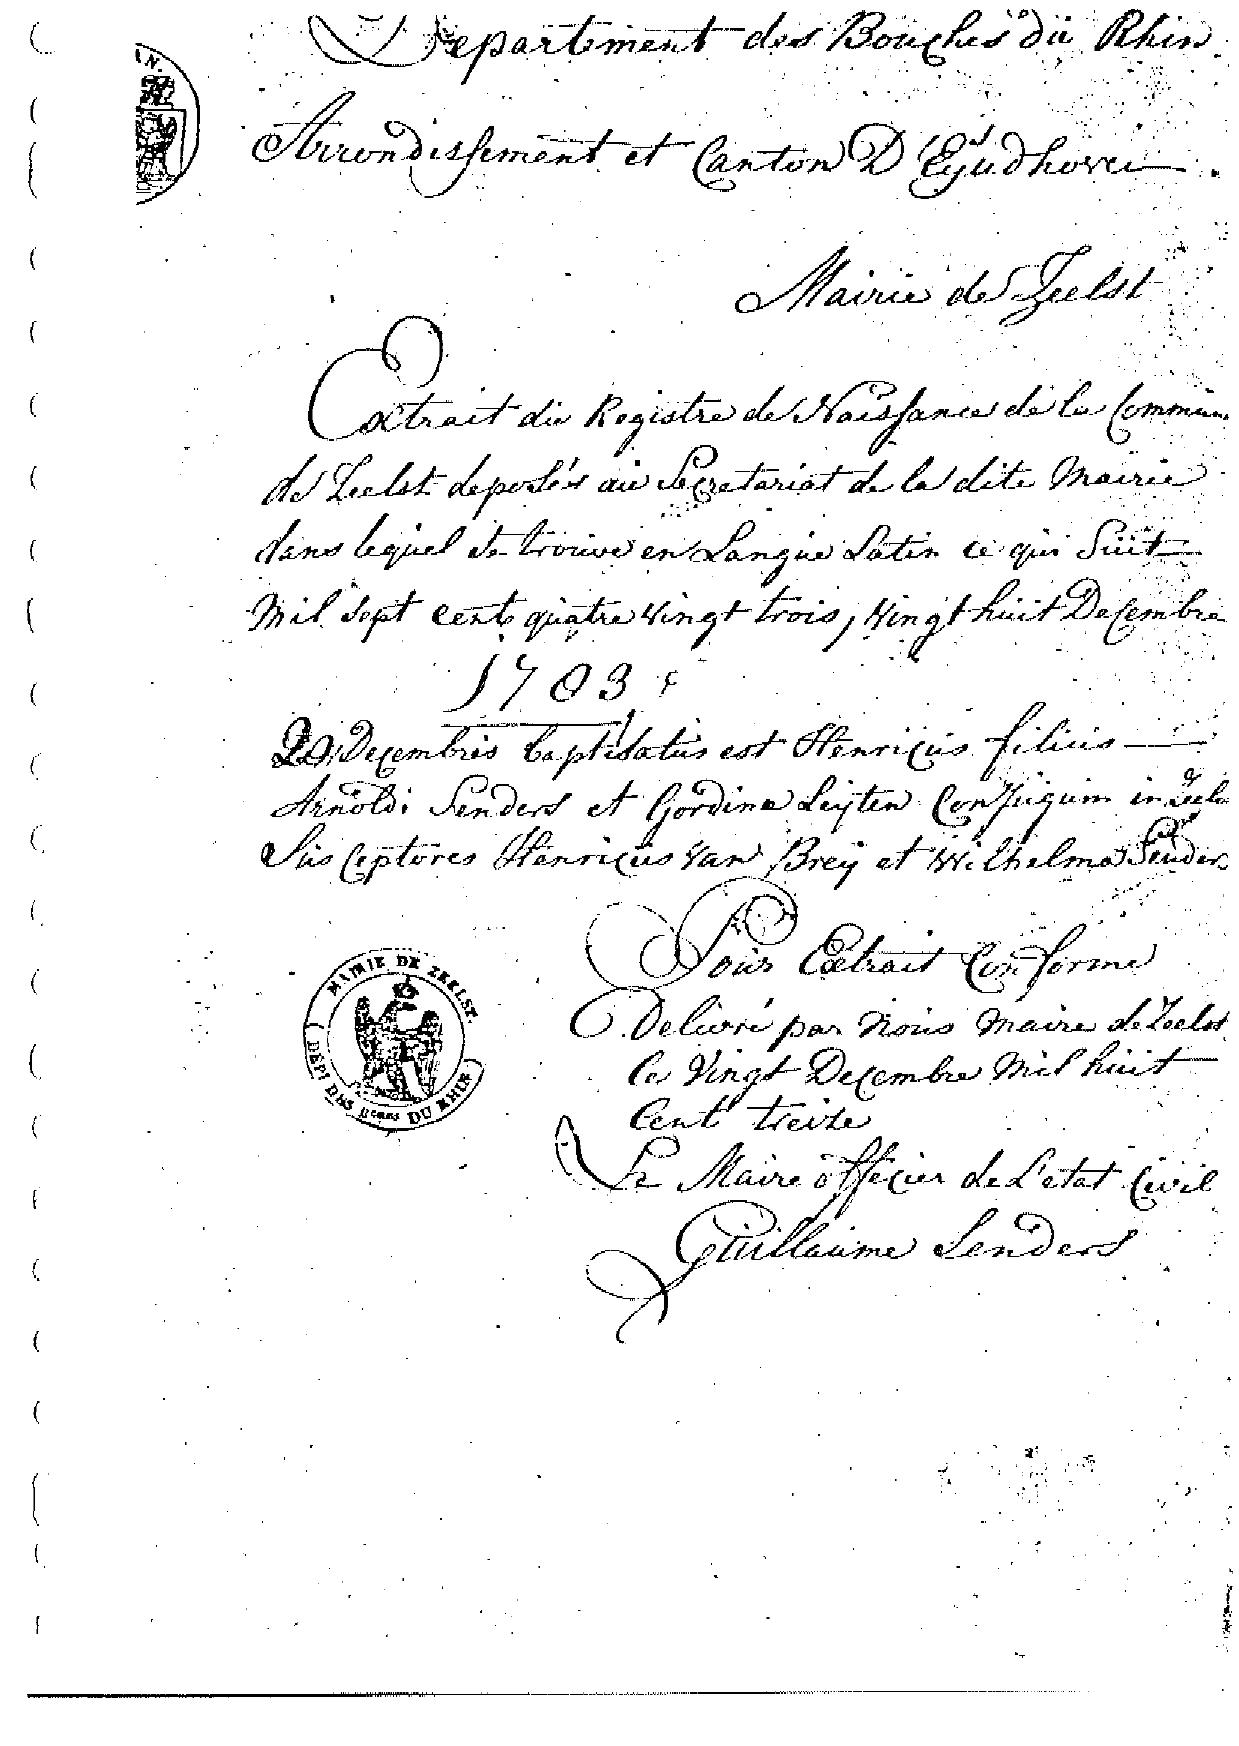 Departement des Bouches du Rhin
Arrondissement et Canton D'Eyndhoven
Mairie de Zeelst
Extrait du Registre de Naissance de la Commun
de Zeelst deposés au Secretariat de la dite Mairie
dans lequel se trouve en Langue Latin ce qui Suit
Mil Sept cent quatre Vingt trois, Vingt huit Decembre
1783
Decembris baptisatus est Henricus filius
Arnoldi Senders et Gordina Leyten Conjugum in Zeels
Susceptores Henricus Van Brey et Wilhelma Senders
Pour Extrait Conforme
MAIRIE DE ZEELST.
DÉPT DES Bches DU RHIN
Delivré par Nous Maire de Zeelst
Ce Vingt Decembre Mil huit
Cent treize
Le Maire officier de L'etat Civil
Guillaume Senders